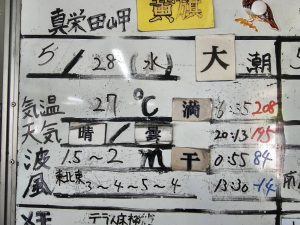 真栄田岬
5/28(水) 大潮
気温 27℃ 満 6:35 208
天気 晴/曇 20:13 195
波 1.5~2m 干 0:55 84
風 東北東 3~4~5~4 13:30 -14